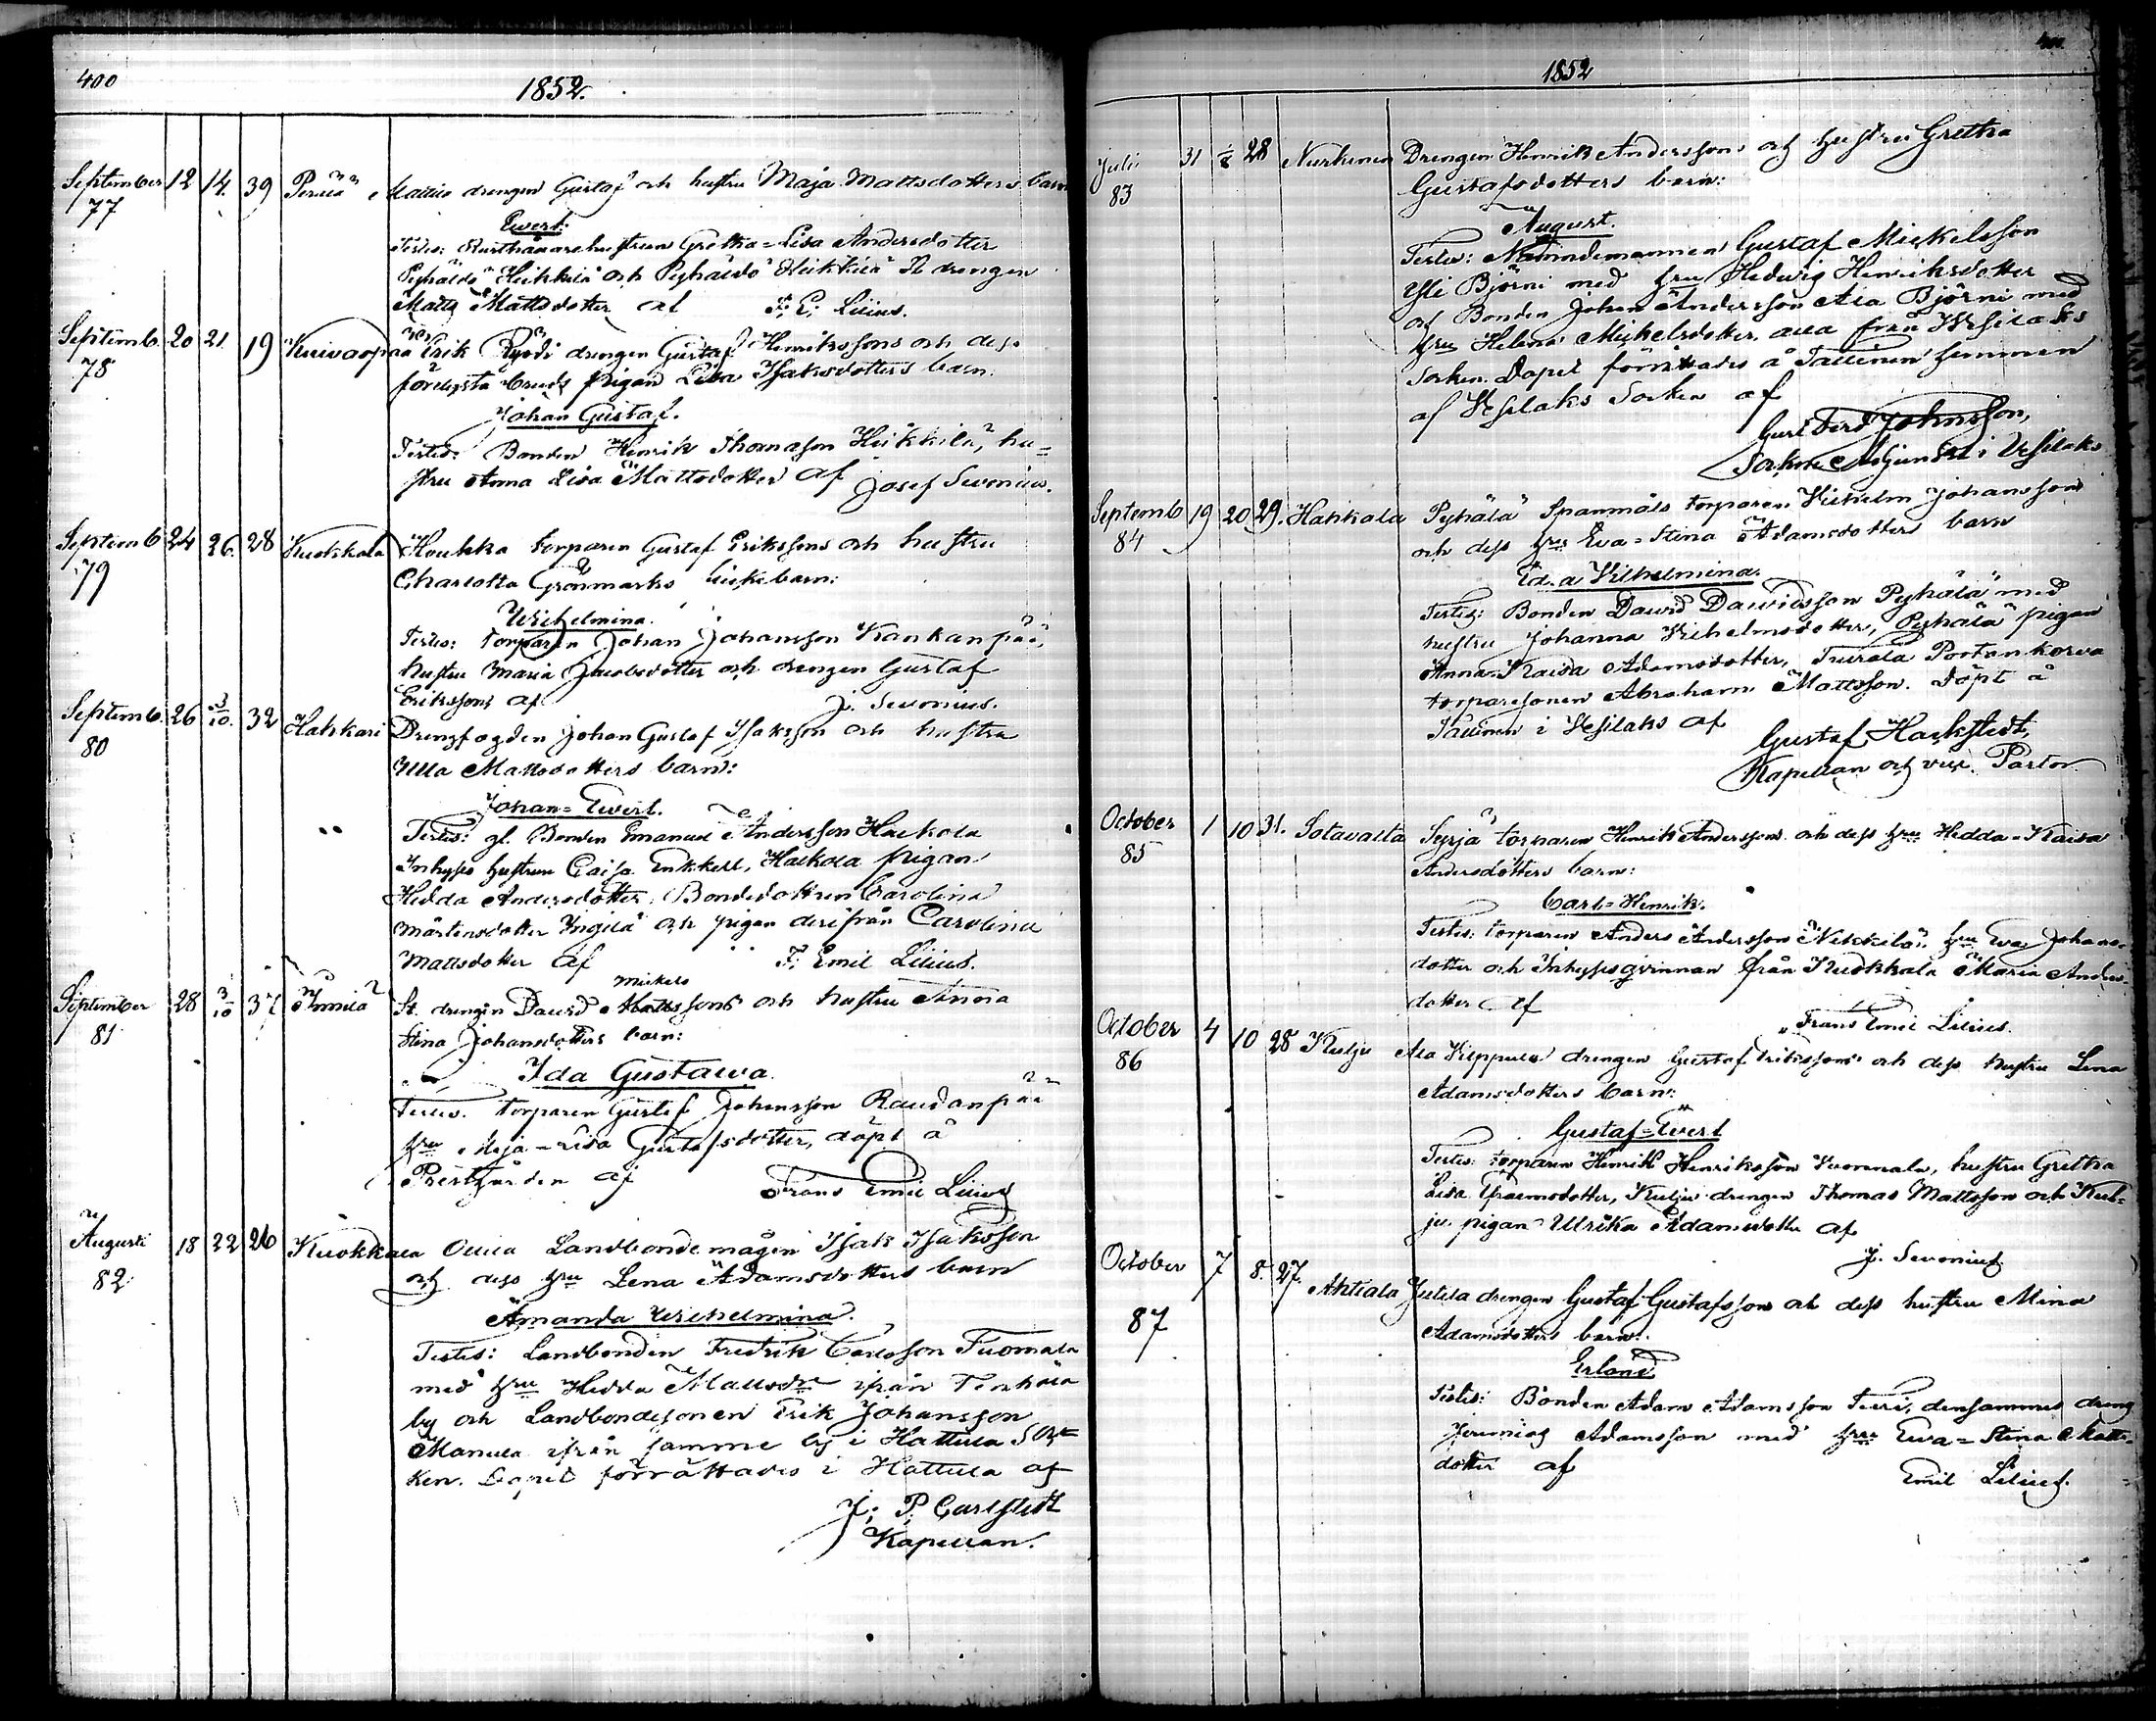 400
1852.
September 12 14. 39 Perälä Mattis drengen Gustaf och hustru Maja Mattsdotters barn
77
Ewert.
Testes: hustrun Gretha=Lisa Andersdotter
Pyhäldö Heikkilä och Pyhäldö Heikkilä St drengen
Matts Mattsdotter af F. E. Lilius.
Septemb. 20 21 19 Kuivaspää Erik drengen Gustaf Henrikssons och dess
78
förlofvade pigan Lisa Isaksdotters barn.
Johan Gustaf.
Testes: Bonden Henrik Thomasson Heikkilä, hu=
stru Anna Lisa Mattsdotter af Josef Sevonius.
Septemb 24 26. 28 Kuokkala Houkka torparen Gustaf Erikssons och hustru
79
Charlotta Grönmarks barn:
Wilhelmina.
Testes: torparen Johan Johansson Kankanpää,
hustru Maria Jacobsdotter och drengen Gustaf
Eriksson af J. Sevonius.
Septemb. 26 3/10. 32 Hahkari Drengfogden Johan Gustaf Isaksson och hustru
80
Ulla Mattsdotters barn:
Johan=Ewert.
Testes: gl. Bonden Emanuel Andersson Haikola
Inhyses hustrun Caisa Enkkell, Haikola pigan
Hedda Andersdotter, Bondedottren Carolina
Mårtensdotter Yngilä och pigan derifrån Carolina
Mattsdotter af F. Emil Lilius.
Mickels
September 28 3/10 37 Annila St. drengen David Mattssons och hustru Anna
81
Stina Johansdotters barn:
Ida Gustava
Testes. torparen Gustaf Johansson Raudanpää
hru Maja=Lisa Gustafsdotter, döpt å
Prestgården af Frans Emil Lilius
Augusti 18 22 26 Kuokkala Ollila Landbondemågen Isak Isaksson
82
och dess hru Lena Adamsdotters barn
Amanda Wilhelmina.
Testes: Landbonden Fredrik Carlsson Tuomala
med hru Hedda Mattsdr ifrån
by och Landbondesonen Erik Johansson
Manula ifrån samme by i Hattula Soc
ken. Dopet förrättades i Hattula af
J. P. Carlstedt
Kapellan.
1852
Juli 31 1/8 28 Nurkinen Drengen Henrik Anderssons och hustru Gretha
83
Gustafsdotters barn:
August.
Testes: Nämndemannen Gustaf Mickelsson
Yli Björni med hru Hedwig Henriksdotter
och Bonden Johan Andersson Ala Björni med
hru Helena Mickelsdotter, alla från Wesilaks
Socken. Dopet förrättades å Tallinen hemman
af Wesilaks Socken af
Gust. Ferd. Johnsson,
Sockne Adjunkt i Vesilaks
Septemb 19 20 29. Hakkala Pyhälä Spanmåls torparen Wilhelm Johanssons
84
och dess hru Eva=Stina Adamsdotters barn
Eda Vilhelmina.
Testes: Bonden David Davidsson Pyhälä med
hustru Johanna Wilhelmsdotter, Pyhälä pigan
Anna Kaisa Adamsdotter, Turala Portankorva
torparesonen Abraham Mattsson. Döpt å
Tallinen i Vesilaks af
Gustaf Hackstedt,
Kapellan och vice Pastor
October 1 10 31. Sotavalta Syrjä torparen Henrik Anderssons och dess hru Hedda=Kaisa
85
Andersdotters barn:
Carl=Henrik.
Testes: torparen Anders Andersson Nikkilä, hru Eva Johans=
dotter och Inhysesqvinnan från Kuokkala Maria Anders
dotter af Frans Emil Lilius.
October 4 10 28 Kulju Ala Kleppula drengen Gustaf Erikssons och dess hustru Lena
86
Adamsdotters barn:
Gustaf=Evert
Testes: torparen Henrik Henriksson Vuorinala, hustru Gretha
Lisa Efraimsdotter, Kulju drengen Thomas Mattsson och Kul=
ju pigan Ulrika Adamsdotter af
J. Sevonius.
October 7 8. 27 Ahtiala Jutila drengen Gustaf Gustafssons och dess hustru Mina
87
Adamsdotters barn:
Erland
Testes: Bonden Adam Adamsson Turri, densammes dreng
Jeremias Adamsson med hru Eva=Stina Matts=
dotter af Emil Lilius.